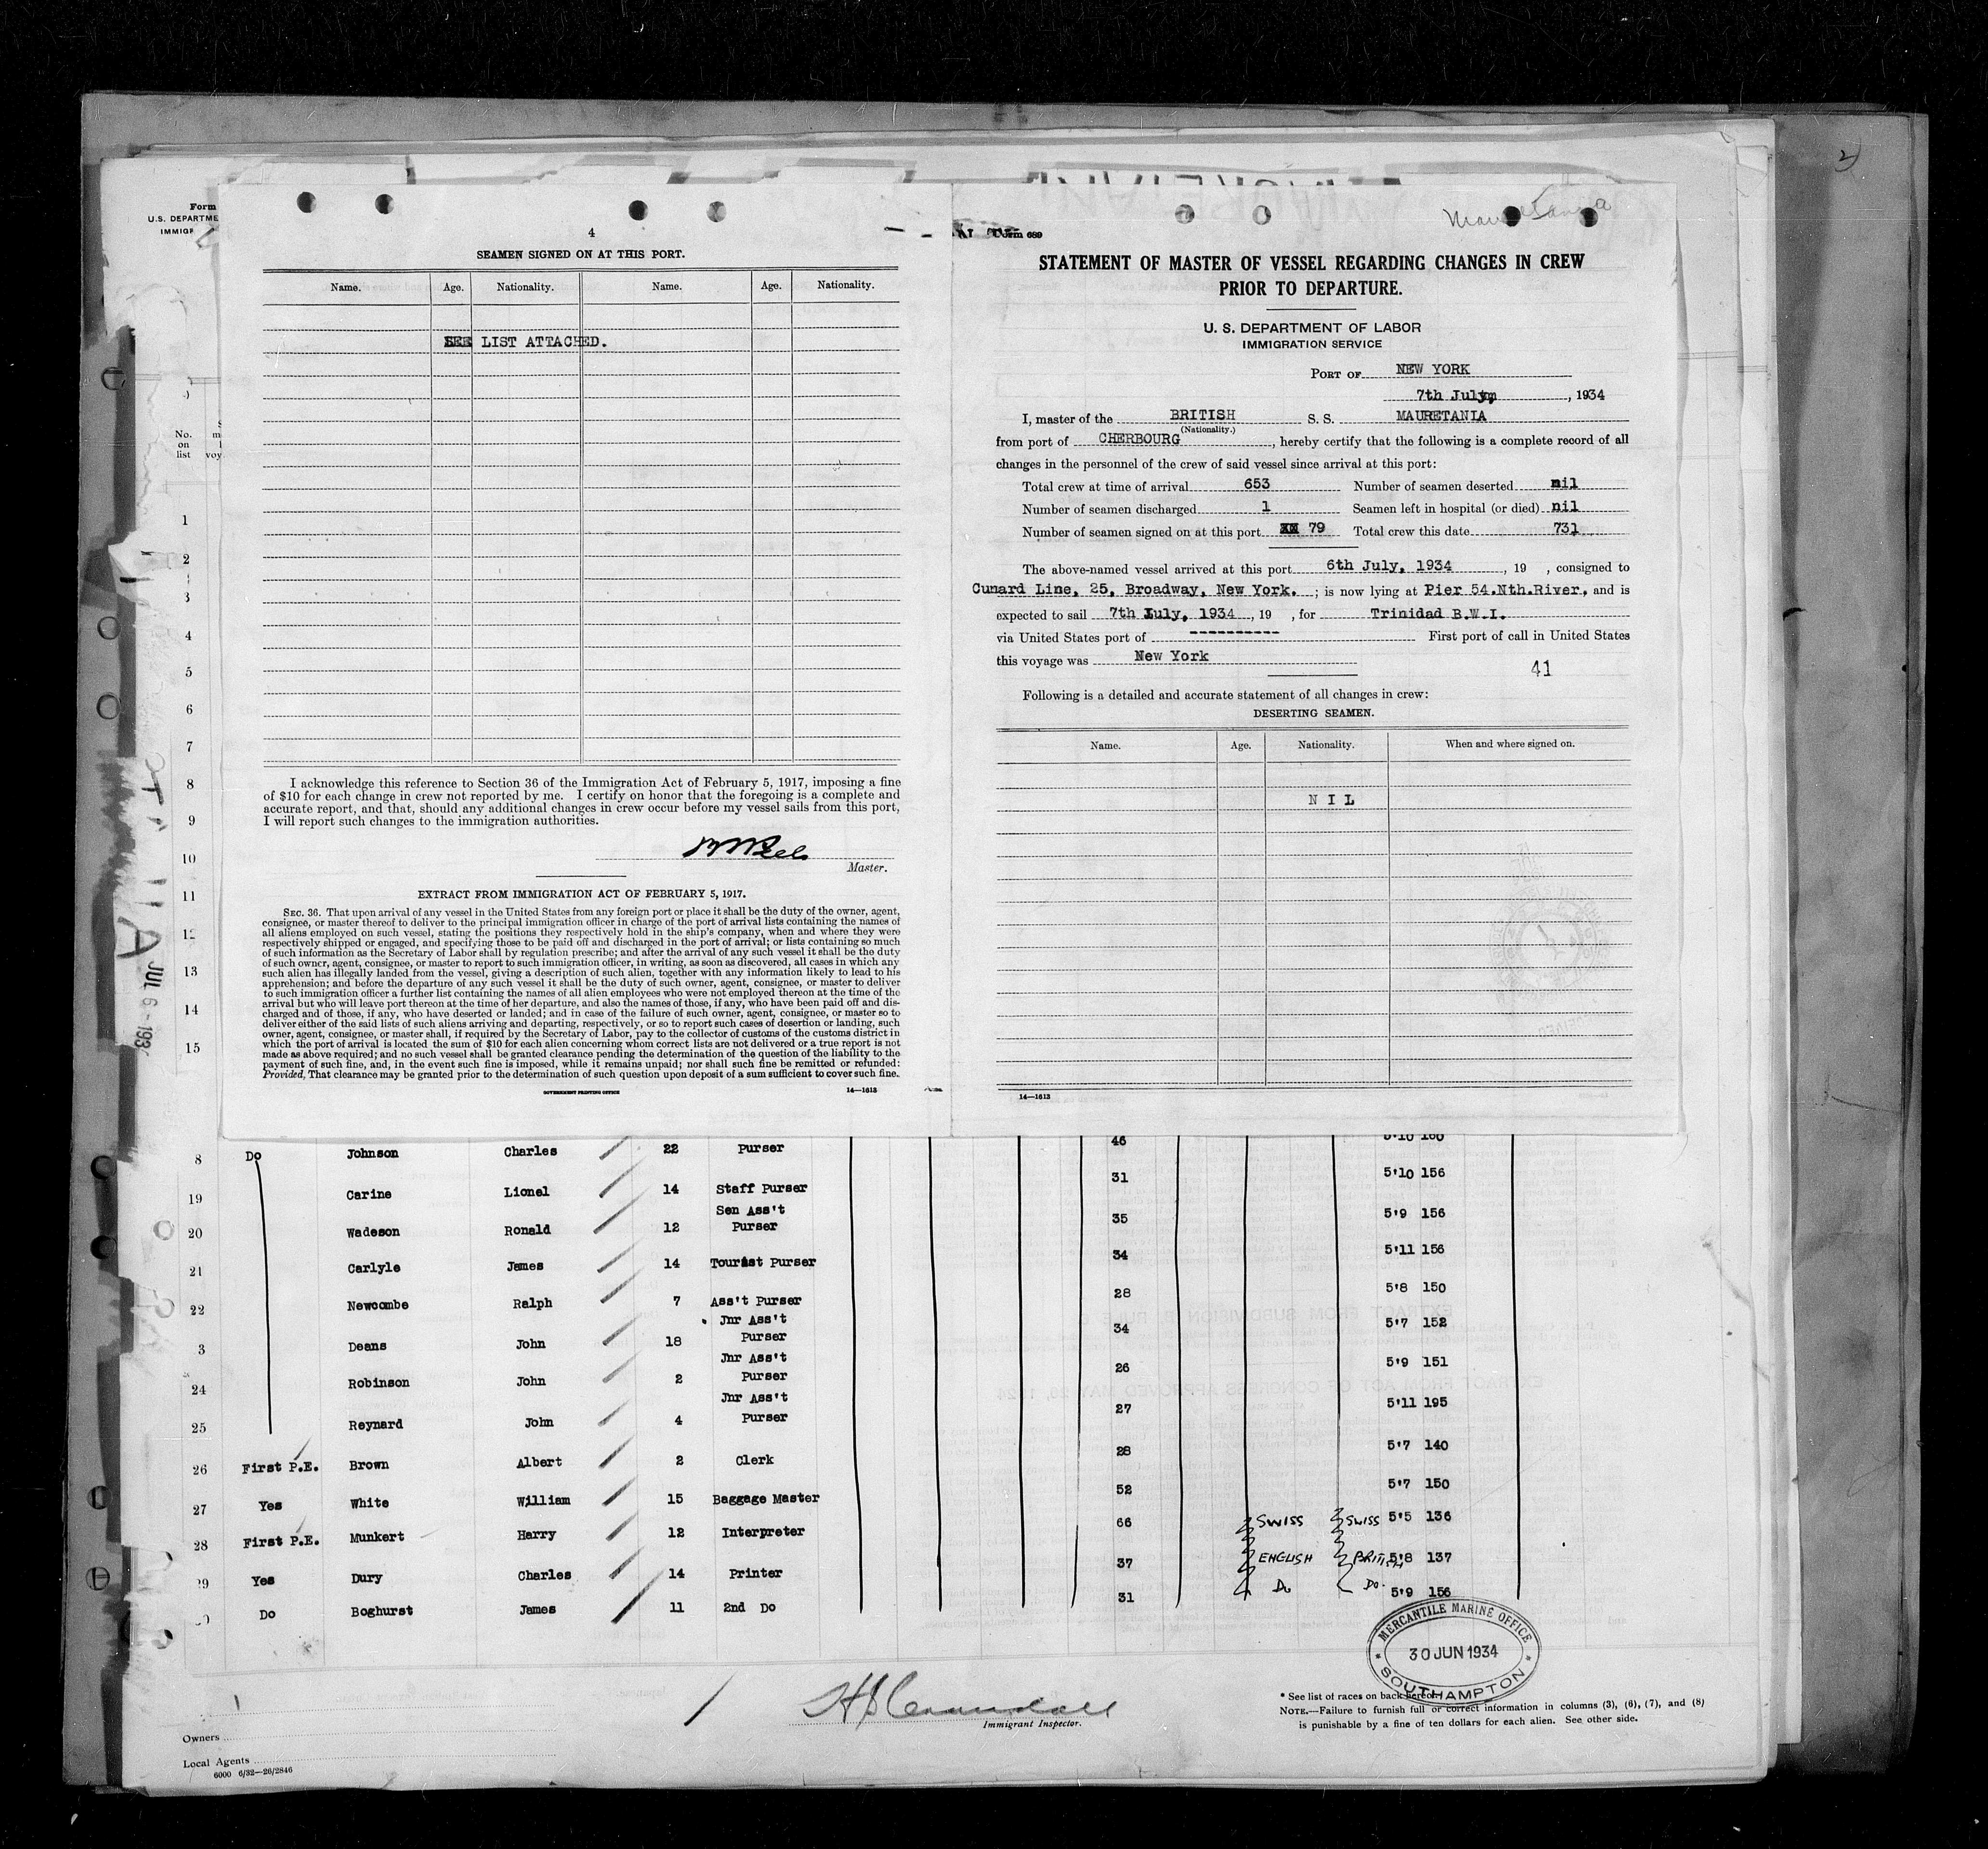 Form
U.S. DEPARTME
IMMIGR
4
SEAMEN SIGNED ON AT THIS PORT.
Name. Age. Nationality. Name. Age. Nationality.
SEE LIST ATTACHED.
I acknowledge this reference to Section 36 of the Immigration Act of February 5, 1917, imposing a fine
of $10 for each change in crew not reported by me. I certify on honor that the foregoing is a complete and
accurate report, and that, should any additional changes in crew occur before my vessel sails from this port,
I will report such changes to the immigration authorities.
Master.
EXTRACT FROM IMMIGRATION ACT OF FEBRUARY 5, 1917.
SEC. 36. That upon arrival of any vessel in the United States from any foreign port or place it shall be the duty of the owner, agent,
consignee, or master thereof to deliver to the principal immigration officer in charge of the port of arrival lists containing the names of
all aliens employed on such vessel, stating the positions they respectively hold in the ship's company, when and where they were
respectively shipped or engaged, and specifying those to be paid off and discharged in the port of arrival; or lists containing so much
of such information as the Secretary of Labor shall by regulation prescribe; and after the arrival of any such vessel it shall be the duty
of such owner, agent, consignee, or master to report to such immigration officer, in writing, as soon as discovered, all cases in which any
such alien has illegally landed from the vessel, giving a description of such alien, together with any information likely to lead to his
apprehension; and before the departure of any such vessel it shall be the duty of such owner, agent, consignee, or master to deliver
to such immigration officer a further list containing the names of all alien employees who were not employed thereon at the time of the
arrival but who will leave port thereon at the time of her departure, and also the names of those, if any, who have been paid off and dis-
charged and of those, if any, who have deserted or landed; and in case of the failure of such owner, agent, consignee, or master so to
deliver either of the said lists of such aliens arriving and departing, respectively, or so to report such cases of desertion or landing, such
owner, agent, consignee, or master shall, if required by the Secretary of Labor, pay to the collector of customs of the customs district in
which the port of arrival is located the sum of $10 for each alien concerning whom correct lists are not delivered or a true report is not
made as above required; and no such vessel shall be granted clearance pending the determination of the question of the liability to the
payment of such fine, and, in the event such fine is imposed, while it remains unpaid; nor shall such fine be remitted or refunded:
Provided, That clearance may be granted prior to the determination of such question upon deposit of a sum sufficient to cover such fine.
GOVERNMENT PRINTING OFFICE 14—1613
Mauretania
Form 689
STATEMENT OF MASTER OF VESSEL REGARDING CHANGES IN CREW
PRIOR TO DEPARTURE.
U. S. DEPARTMENT OF LABOR
IMMIGRATION SERVICE
PORT OF NEW YORK
7th July, , 1934
I, master of the BRITISH S. S. MAURETANIA
(Nationality.)
from port of CHERBOURG, hereby certify that the following is a complete record of all
changes in the personnel of the crew of said vessel since arrival at this port:
Total crew at time of arrival 653 Number of seamen deserted nil
Number of seamen discharged 1 Seamen left in hospital (or died) nil
Number of seamen signed on at this port 79 Total crew this date 731
The above-named vessel arrived at this port 6th July, 1934, 19 , consigned to
Cunard Line, 25, Broadway, New York. ; is now lying at Pier 54.Nth.River, and is
expected to sail 7th July, 1934, 19 , for Trinidad B.W.I.
via United States port of ---------- First port of call in United States
this voyage was New York
41
Following is a detailed and accurate statement of all changes in crew:
DESERTING SEAMEN.
Name. Age. Nationality. When and where signed on.
N I L
14—1613
No.
on
list
1
2
3
4
5
6
7
8
9
10
11
12
13
14
15
JUL 6 - 193
8 Do Johnson Charles 22 Purser 46 5'10 160
19 Carine Lionel 14 Staff Purser 31 5'10 156
20 Wadeson Ronald 12 Sen Ass't Purser 35 5'9 156
21 Carlyle James 14 Tourist Purser 34 5'11 156
22 Newcombe Ralph 7 Ass't Purser 28 5'8 150
3 Deans John 18 Jnr Ass't Purser 34 5'7 152
24 Robinson John 2 Jnr Ass't Purser 26 5'9 151
25 Reynard John 4 Jnr Ass't Purser 27 5'11 195
26 First P.E. Brown Albert 2 Clerk 28 5'7 140
27 Yes White William 15 Baggage Master 52 5'7 150
28 First P.E. Munkert Harry 12 Interpreter 66 SWISS SWISS 5'5 136
29 Yes Dury Charles 14 Printer 37 ENGLISH BRITISH 5'8 137
Do Boghurst James 11 2nd Do 31 Do Do. 5'9 156
MERCANTILE MARINE OFFICE
30 JUN 1934
SOUTHAMPTON
Immigrant Inspector.
* See list of races on back hereof.
NOTE.—Failure to furnish full or correct information in columns (3), (6), (7), and (8)
is punishable by a fine of ten dollars for each alien. See other side.
Owners
Local Agents
6000 6/32—26/2846